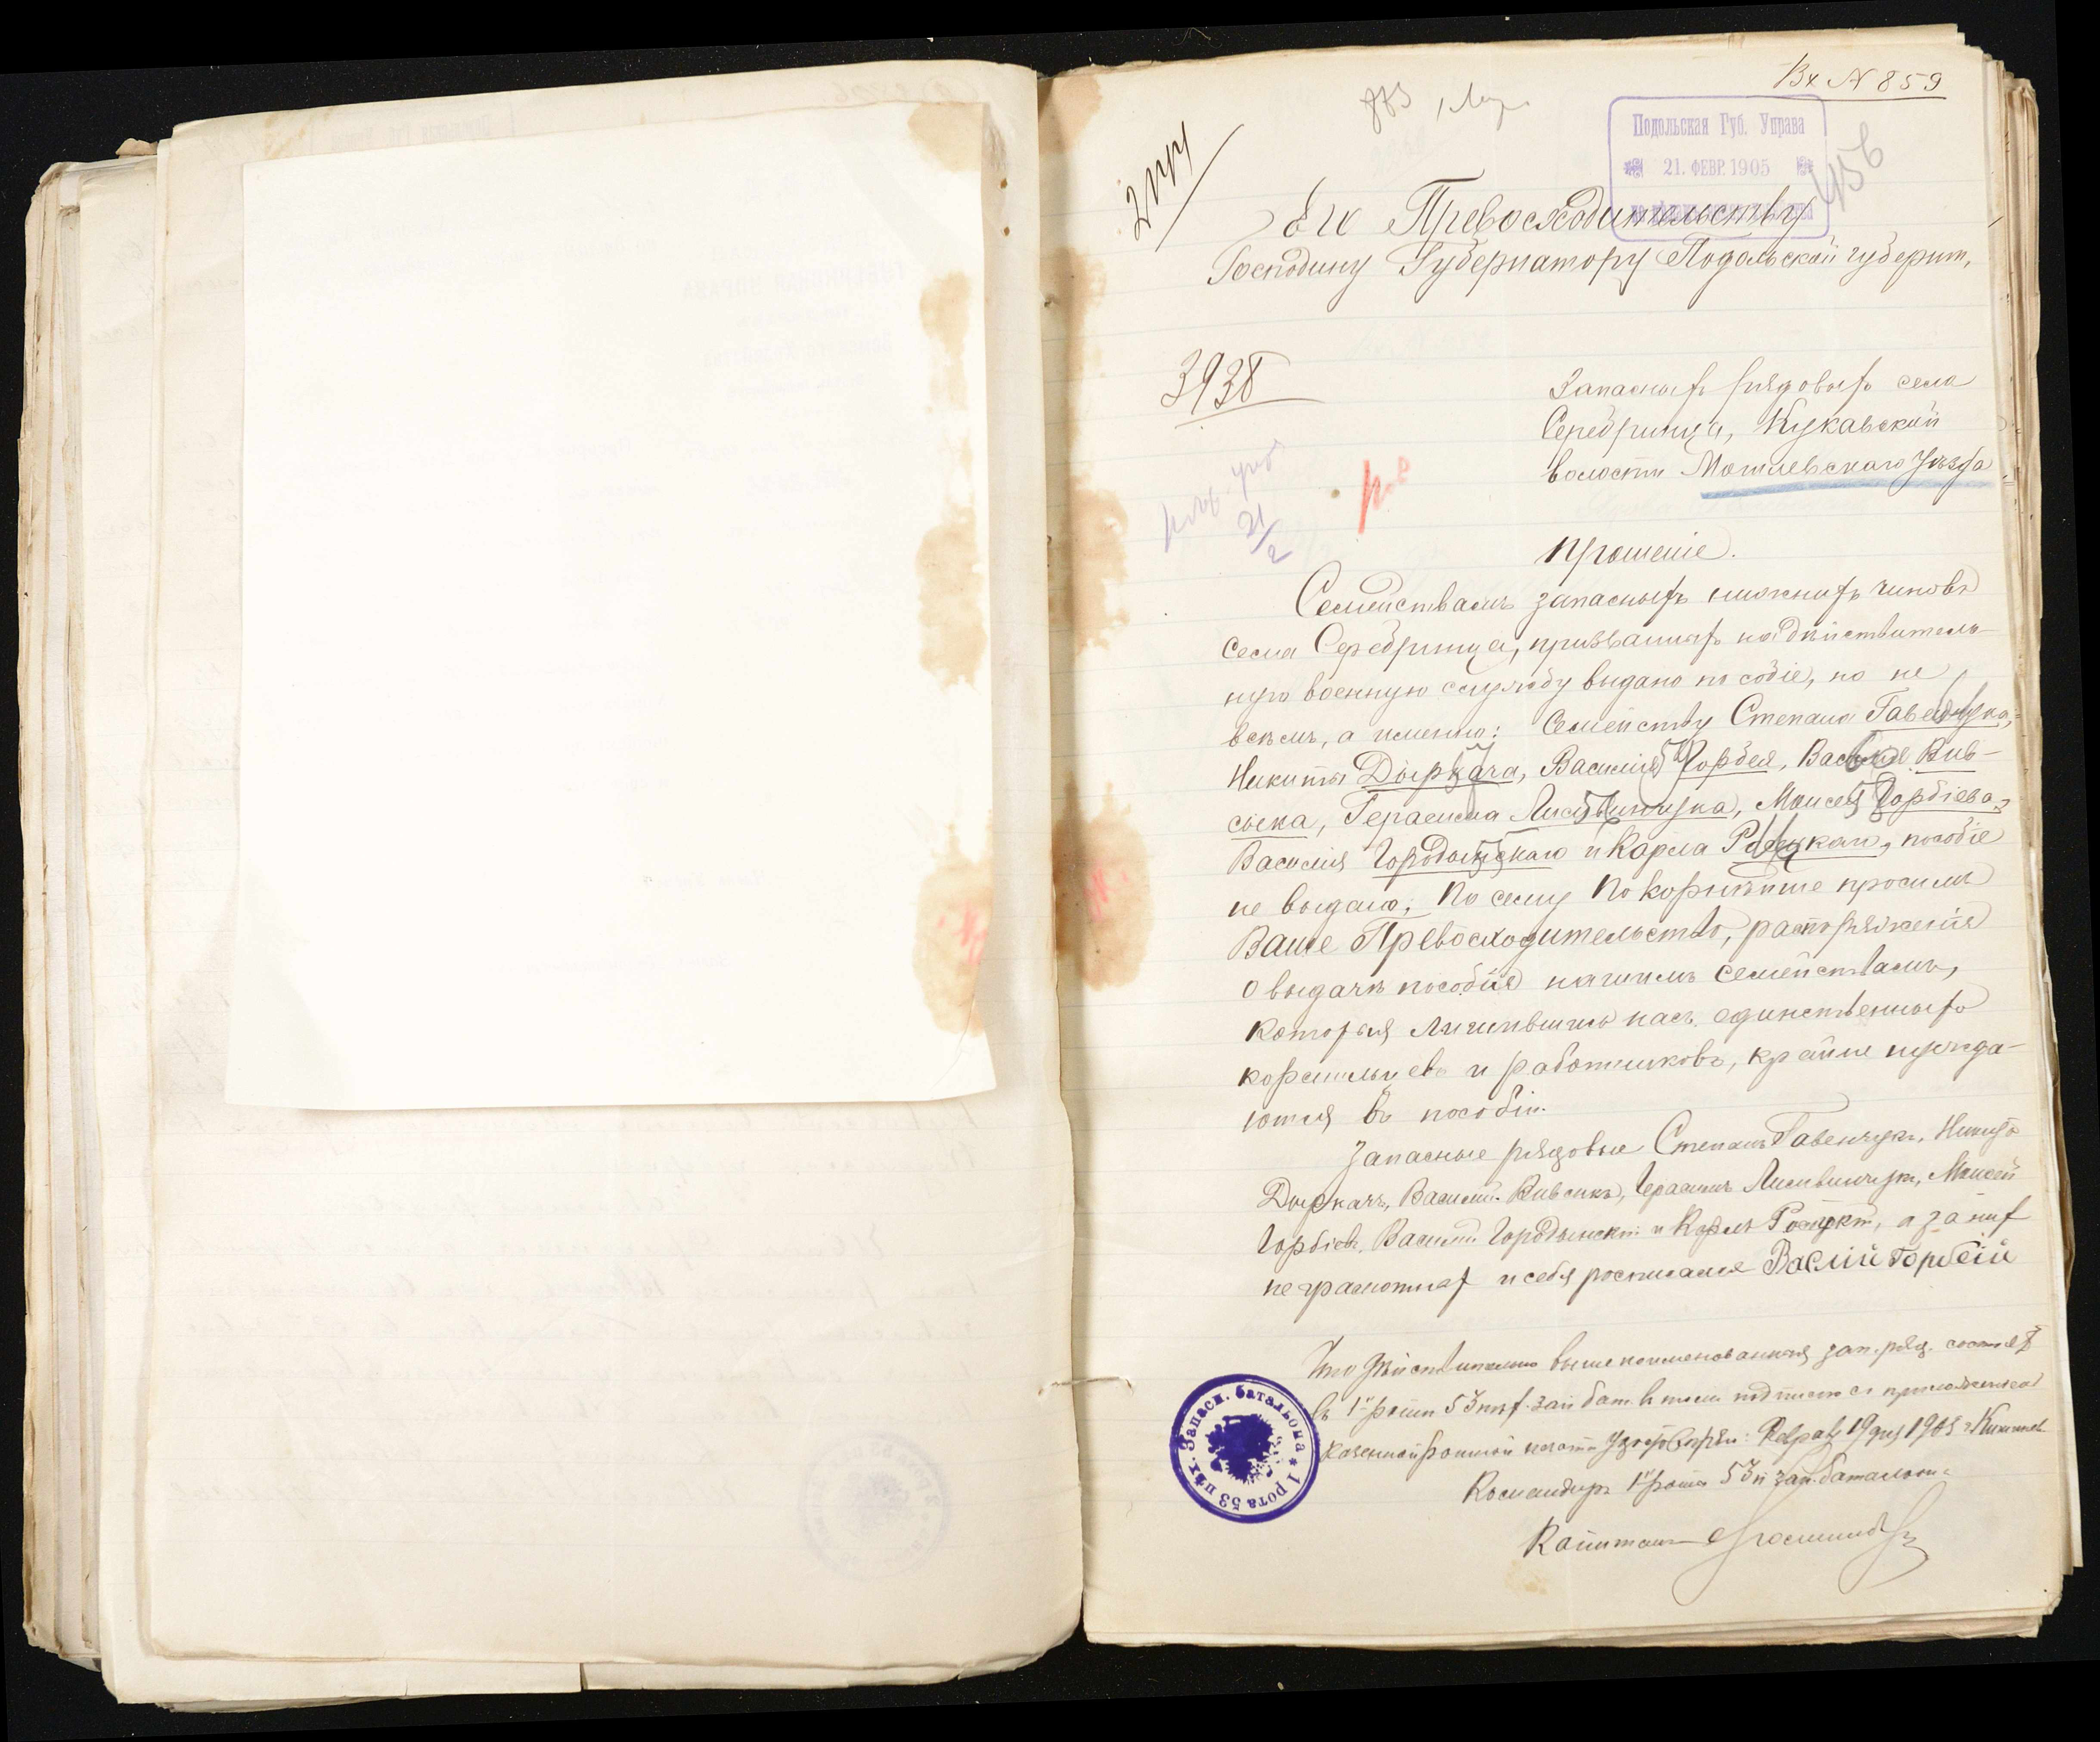 Вх № 859
883
Подольская Губ. Управа
21. ФЕВР. 1905
456
Его Превосходительству
Господину Губернатору Подольской губерніи,
3938
Запасныхъ рядовыхъ села
Серебринца, Кукавской
волости Могилевскаго уѣзда
21/2
Прошеніе.
Семействамъ запасныхъ нижнихъ чиновъ
села Серебринца, призванныхъ на дѣйствитель-
ную военную службу выдано пособіе, но не
всѣмъ, а именно: Семейству Степана Гавенчука,
Никиты Дыркача, Василія Горбея, Василія Вив-
сыка, Герасима Лисивинчука, Моисея Горбіева,
Василія Городынскаго и Карла пособіе
не выдано; По сему Покорнѣйше просимъ
Ваше Превосходительство, распоряженія
о выдачѣ пособія нашимъ семействамъ,
которыя лишившись насъ единственныхъ
кормильцевъ и работниковъ, крайне нужда-
ются въ пособіи.
Запасные рядовые Степанъ Гавенчукъ, Никита
Дыркачъ, Василій Вивсикъ, Герасимъ Лисивинчукъ, Моисей
Горбіевъ, Василій Городынскій и Карлъ а за них
неграмотных и себя росписался Васлий Горбей
Что дѣйствительно вышепоименованныя зап. ряд. состоятъ
въ 1й ротѣ 53 пѣх. зап. бат. в томъ подписью съ приложеніемъ
казенной ротной печати удостовѣряю: Февраля 19 дня 1905 г. Кишинев
Командиръ 1й роты 53й зап. баталіона
Капитанъ
53 пѣх. Запасн. баталіона * 1 рота